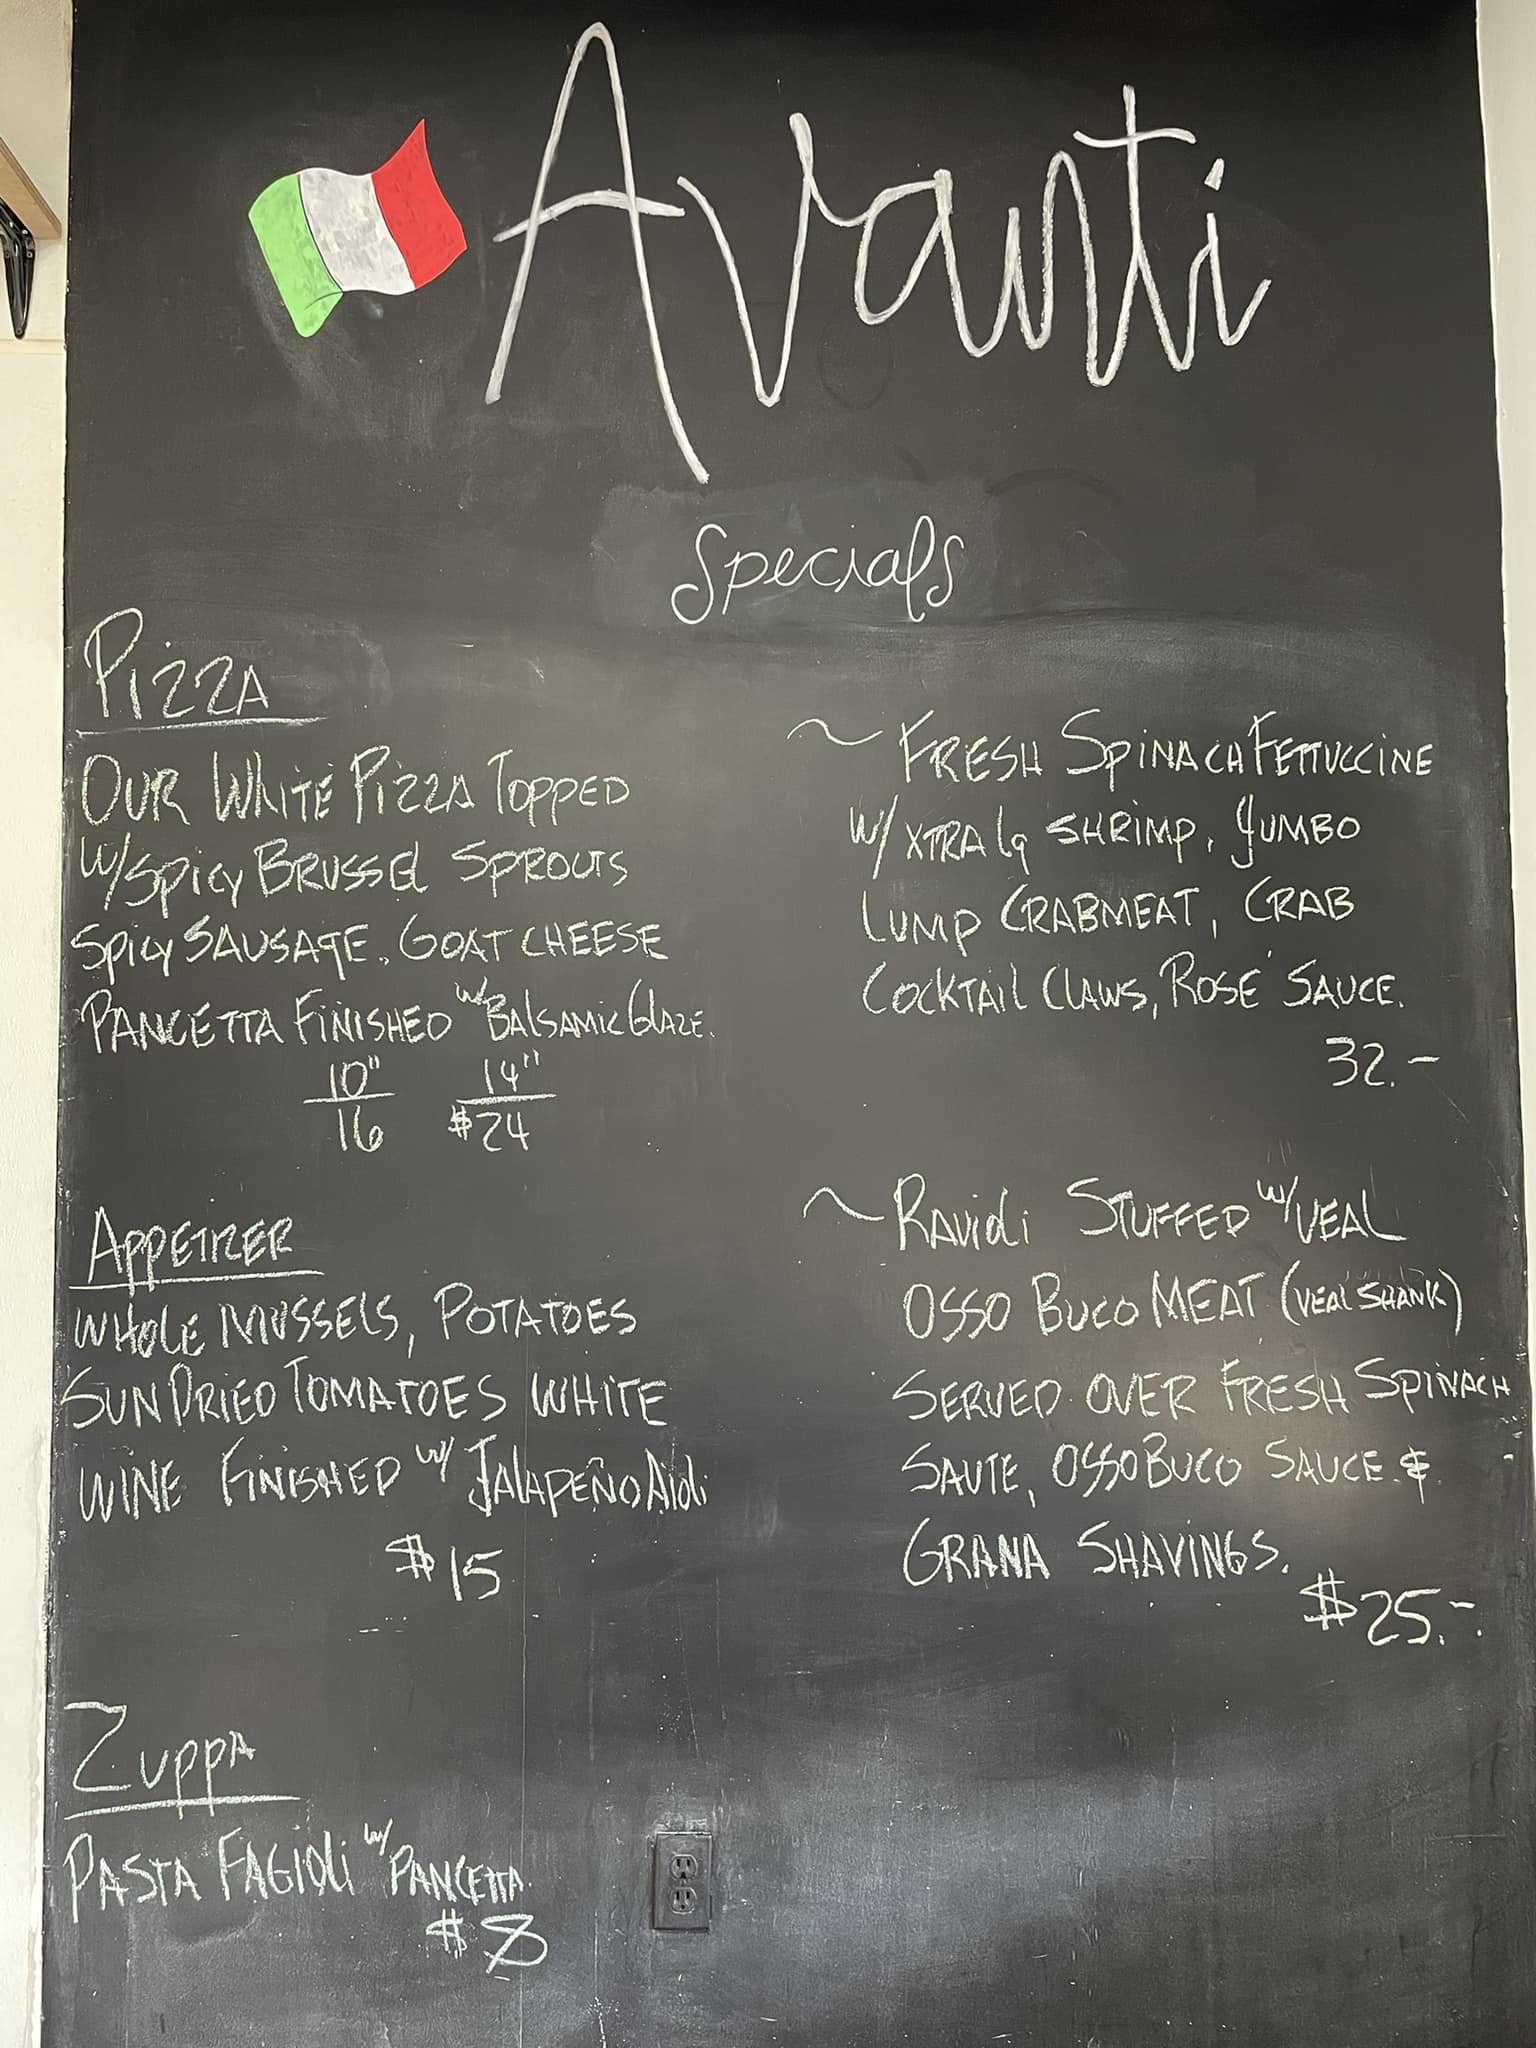 Avanti
Specials
Pizza
Our White Pizza Topped
w/Spicy Brussel Sprouts
Spicy Sausage, Goat Cheese
Pancetta Finished w/ Balsamic Glaze.
10" 14"
16 $24
Appetizer
Whole Mussels, Potatoes
Sun Dried Tomatoes White
Wine Finished w/ Jalapeño Aioli
$15
Zuppa
Pasta Fagioli w/ Pancetta.
$8
~ Fresh Spinach Fettuccine
w/ xtra lg Shrimp, Jumbo
Lump Crabmeat, Crab
Cocktail Claws, Rosé Sauce.
32.-
~ Ravioli Stuffed w/ Veal
Osso Buco Meat (Veal Shank)
Served over Fresh Spinach
Saute, Osso Buco Sauce &
Grana Shavings.
$25.-